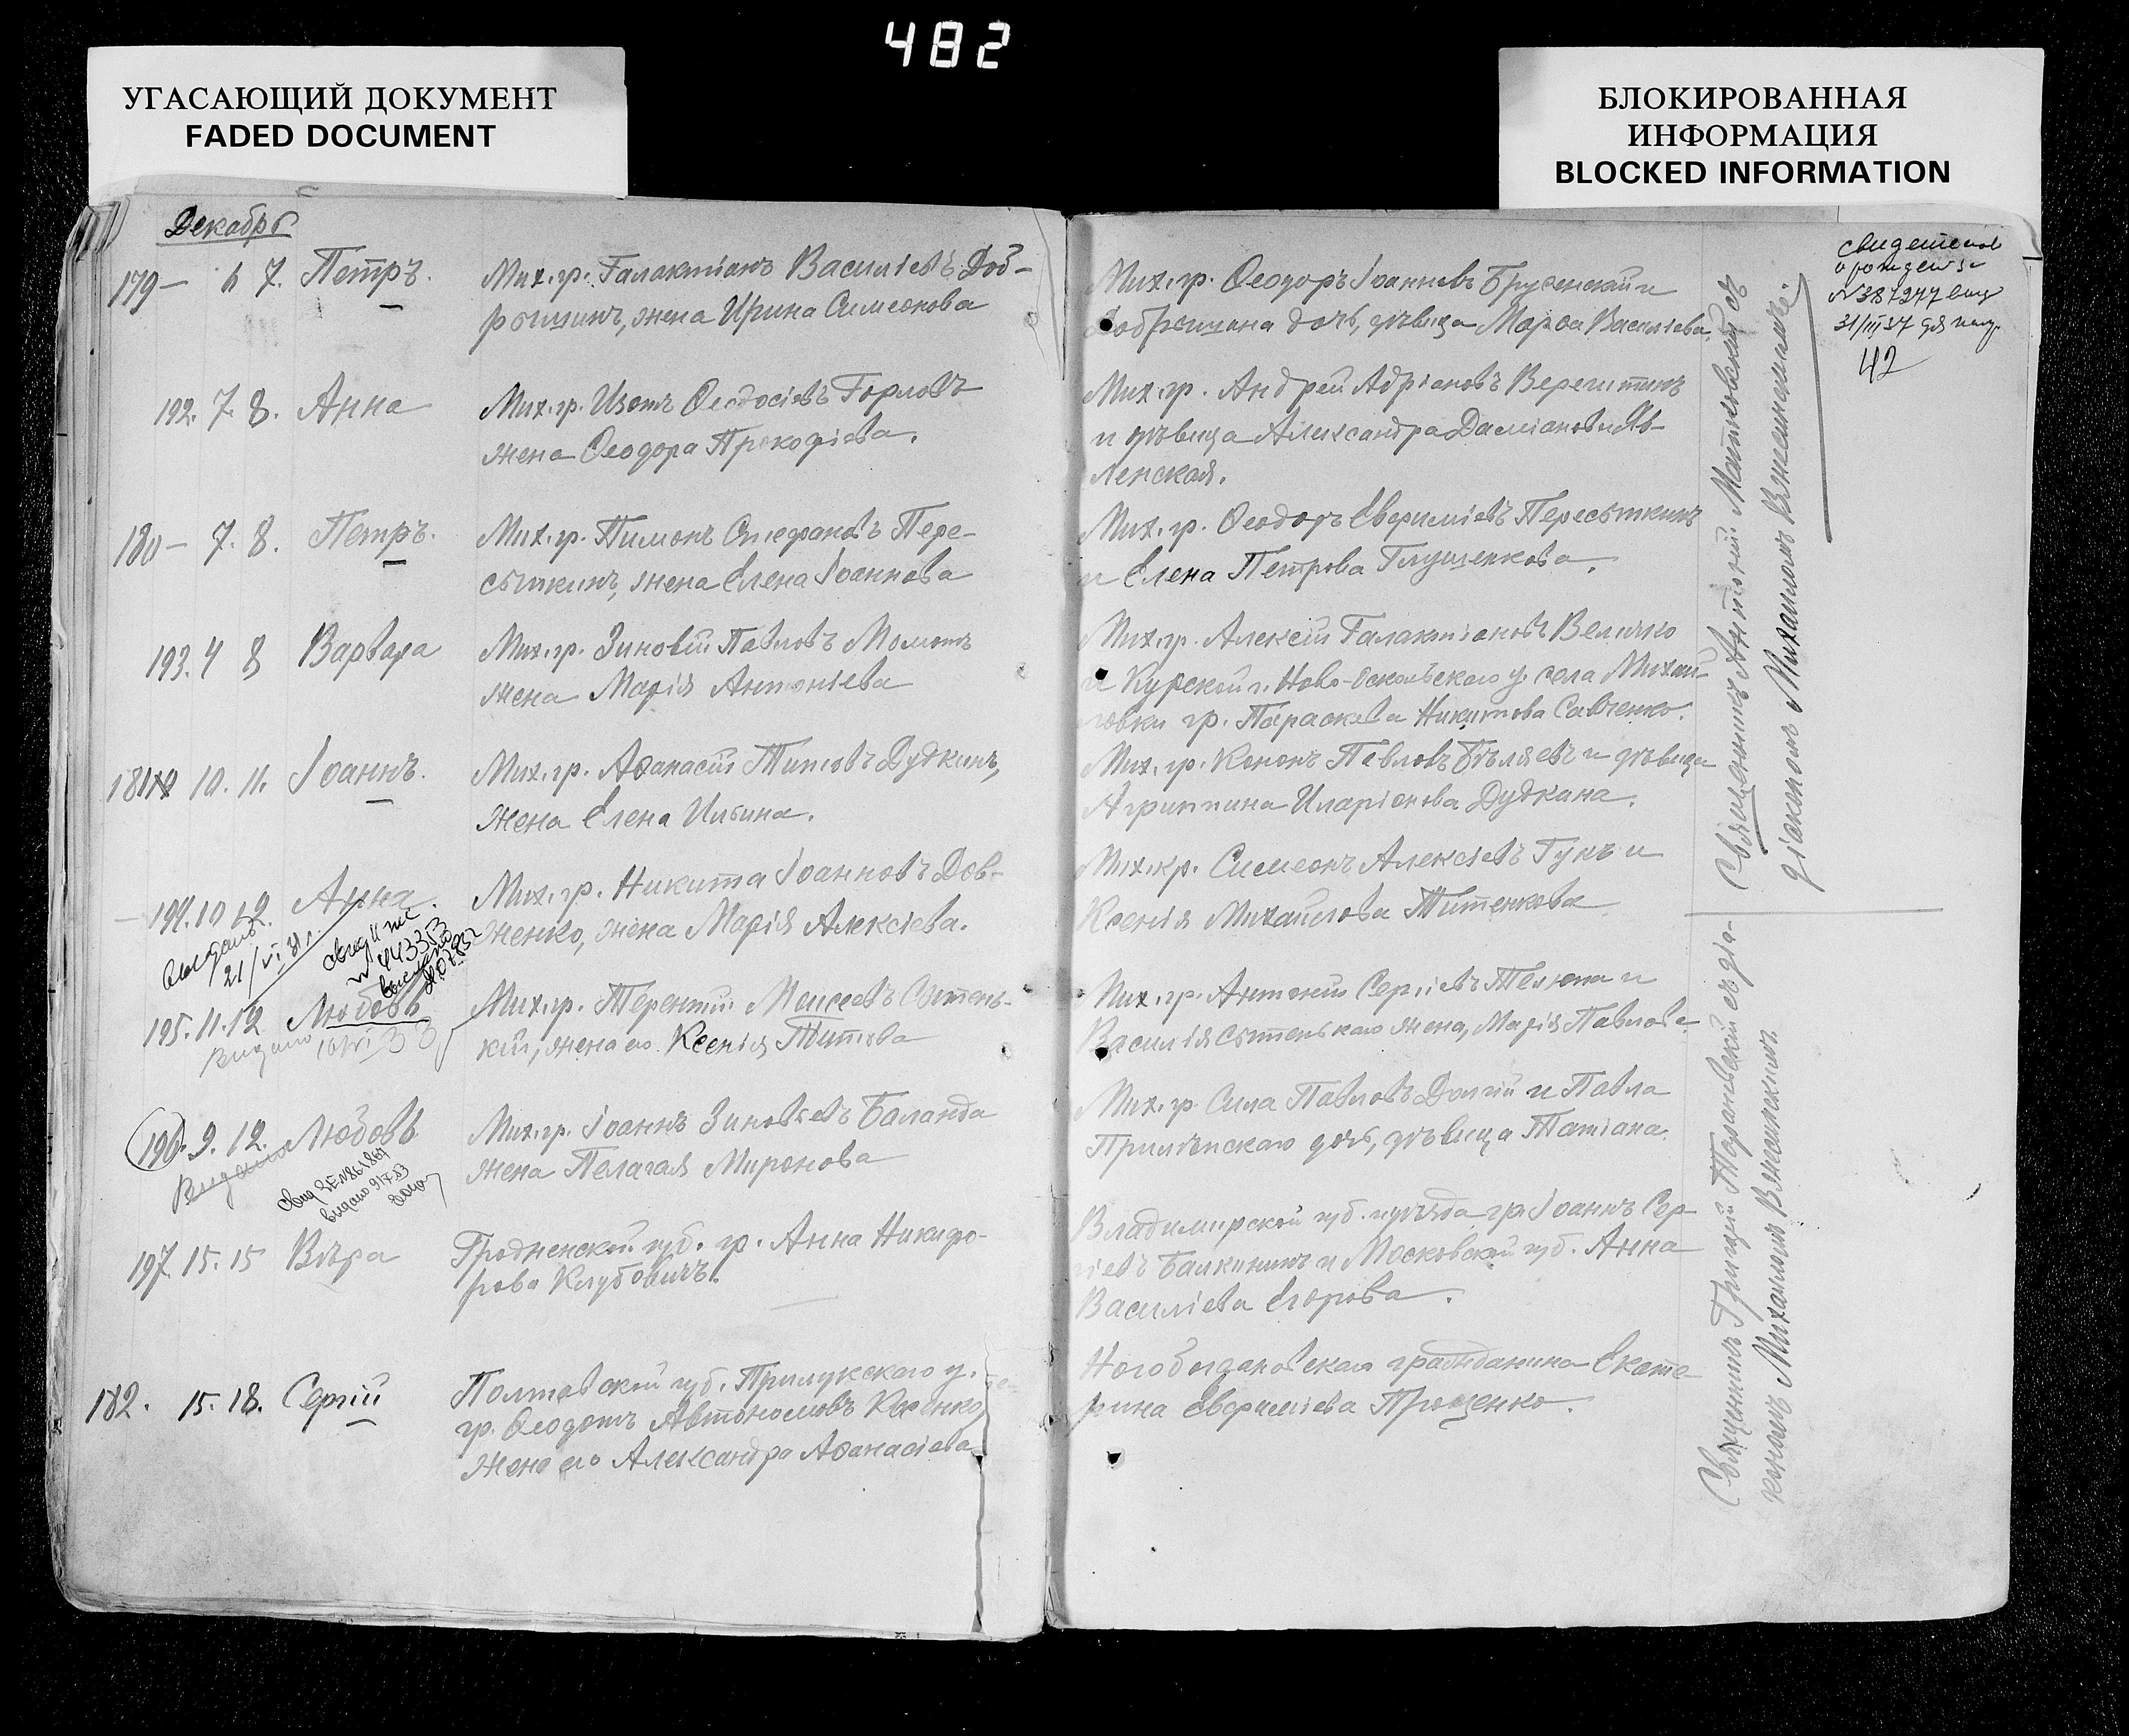 482
УГАСАЮЩИЙ ДОКУМЕНТ
FADED DOCUMENT
БЛОКИРОВАННАЯ
ИНФОРМАЦИЯ
BLOCKED INFORMATION
Декабрь
179 — 6 7. Петръ.
Мих. гр. Галактіонъ Василіевъ Доб-
рыцинъ, жена Ирина Симеонова
192. 7. 8. Анна
Мих. гр. Изотъ Ѳеодосіевъ Горловъ
жена Ѳеодора Прокофіева.
180 — 7. 8. Петръ.
Мих. гр. Тимонъ Стефановъ Пере-
сыткинъ, жена Елена Іоаннова
193. 4 8 Варвара
Мих. гр. Зиновій Павловъ Момотъ
жена Марія Антоніева
181 10. 11. Іоаннъ.
Мих. гр. Аѳанасій Титовъ Дудкинъ,
жена Елена Ильина.
194. 10 12. Анна.
Мих. гр. Никита Іоанновъ Дов-
женко, жена Марія Алексіева.
выдано
21/VI 31 г.
N 443353
195. 11. 12 Любовь
Мих. гр. Терентій Моисеевъ Сытень-
кій, жена его Ксенія Титова
196. 9. 12. Любовь
Мих. гр. Іоаннъ Зиновьевъ Баланда
жена Пелагая Миронова
197. 15. 15 Вѣра
Гродненской губ. гр. Анна Никифо-
рова Клубовичъ.
182. 15. 18. Сергій
Полтавской губ. Прилукскаго у.
гр. Ѳеодотъ Автономовъ Коренко,
жена его Александра Аѳанасіева
Мих. гр. Ѳеодоръ Іоанновъ Бруренскій и
Добрыцина дочь, дѣвица Марѳа Василіева.
Мих. гр. Андрей Адріановъ Верегитинъ
и дѣвица Александра Даміанова Яв-
ленская.
Мих. гр. Ѳеодоръ Евфиміевъ Пересыткинъ
и Елена Петрова Глущенкова.
Мих. гр. Алексій Галактіоновъ Величко
и Курской г. Ново-Оскольскаго у. села Михай-
ловки гр. Параскева Никитова Савченко.
Мих. гр. Кононъ Павловъ Бѣляевъ и дѣвица
Агриппина Иларіонова Дудкина.
Мих. гр. Симеонъ Алексіевъ Гукъ и
Ксенія Михайлова Титенкова
Мих. гр. Антоній Сергіевъ Телюпа и
Василія Сытенькаго жена, Марія Павлова
Мих. гр. Сила Павловъ Долгій и Павла
Прилѣпскаго дочь, дѣвица Татіана.
Владимирской губ. и уѣзда гр. Іоаннъ Сер-
гіевъ Балкининъ и Московской губ. Анна
Василіева Егорова.
Новобогдановскаго гражданина Екате-
рина Евфиміева Проценко.
Священникъ Антоній Матковскій съ
діакономъ Михаиломъ
Священникъ Григорій Тарановскій съ діа-
кономъ Михаиломъ
N 387277
31/III 37
42